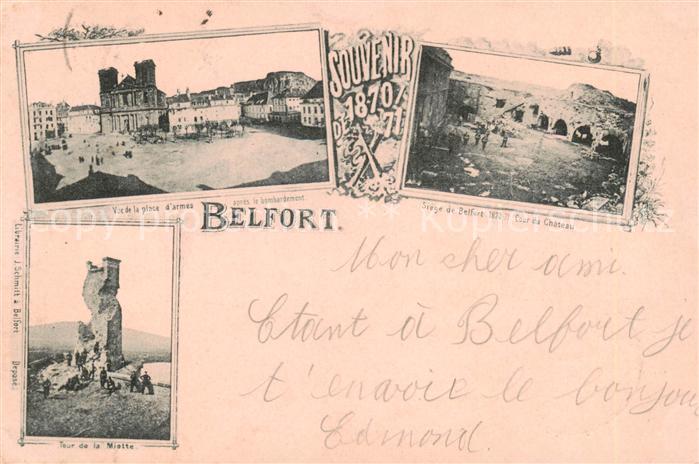 SOUVENIR
DE
1870/
71
Vue de la place d'armes
après le bombardement.
BELFORT.
Siège de Belfort 1870-71 Cour du Château
Copyright
Librairie J. Schmitt à Belfort
Déposé
Tour de la Miotte.
Mon cher ami.
Etant à Belfort je
t'envoie le bonjour
Edmond.